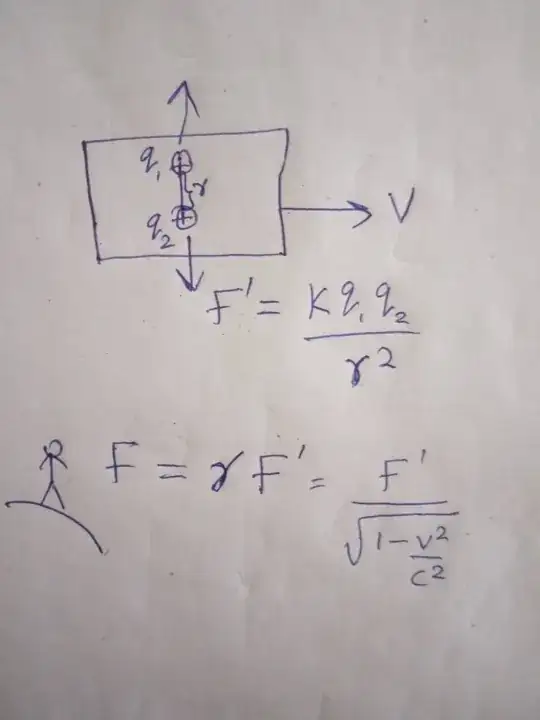 q₁
r
q₂
V
F' = K q₁ q₂ / r²
F = γ F' = F' / √(1 - v²/c²)